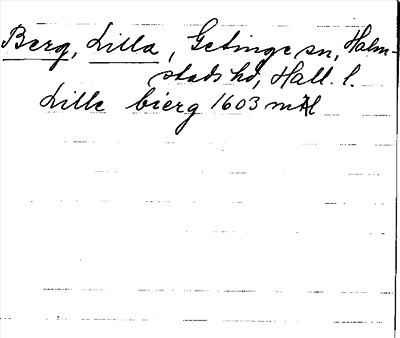 Berg, Lilla, Getinge sn, Halm-
stads hd, Hall. l.
Lille bierg 1603 mtl